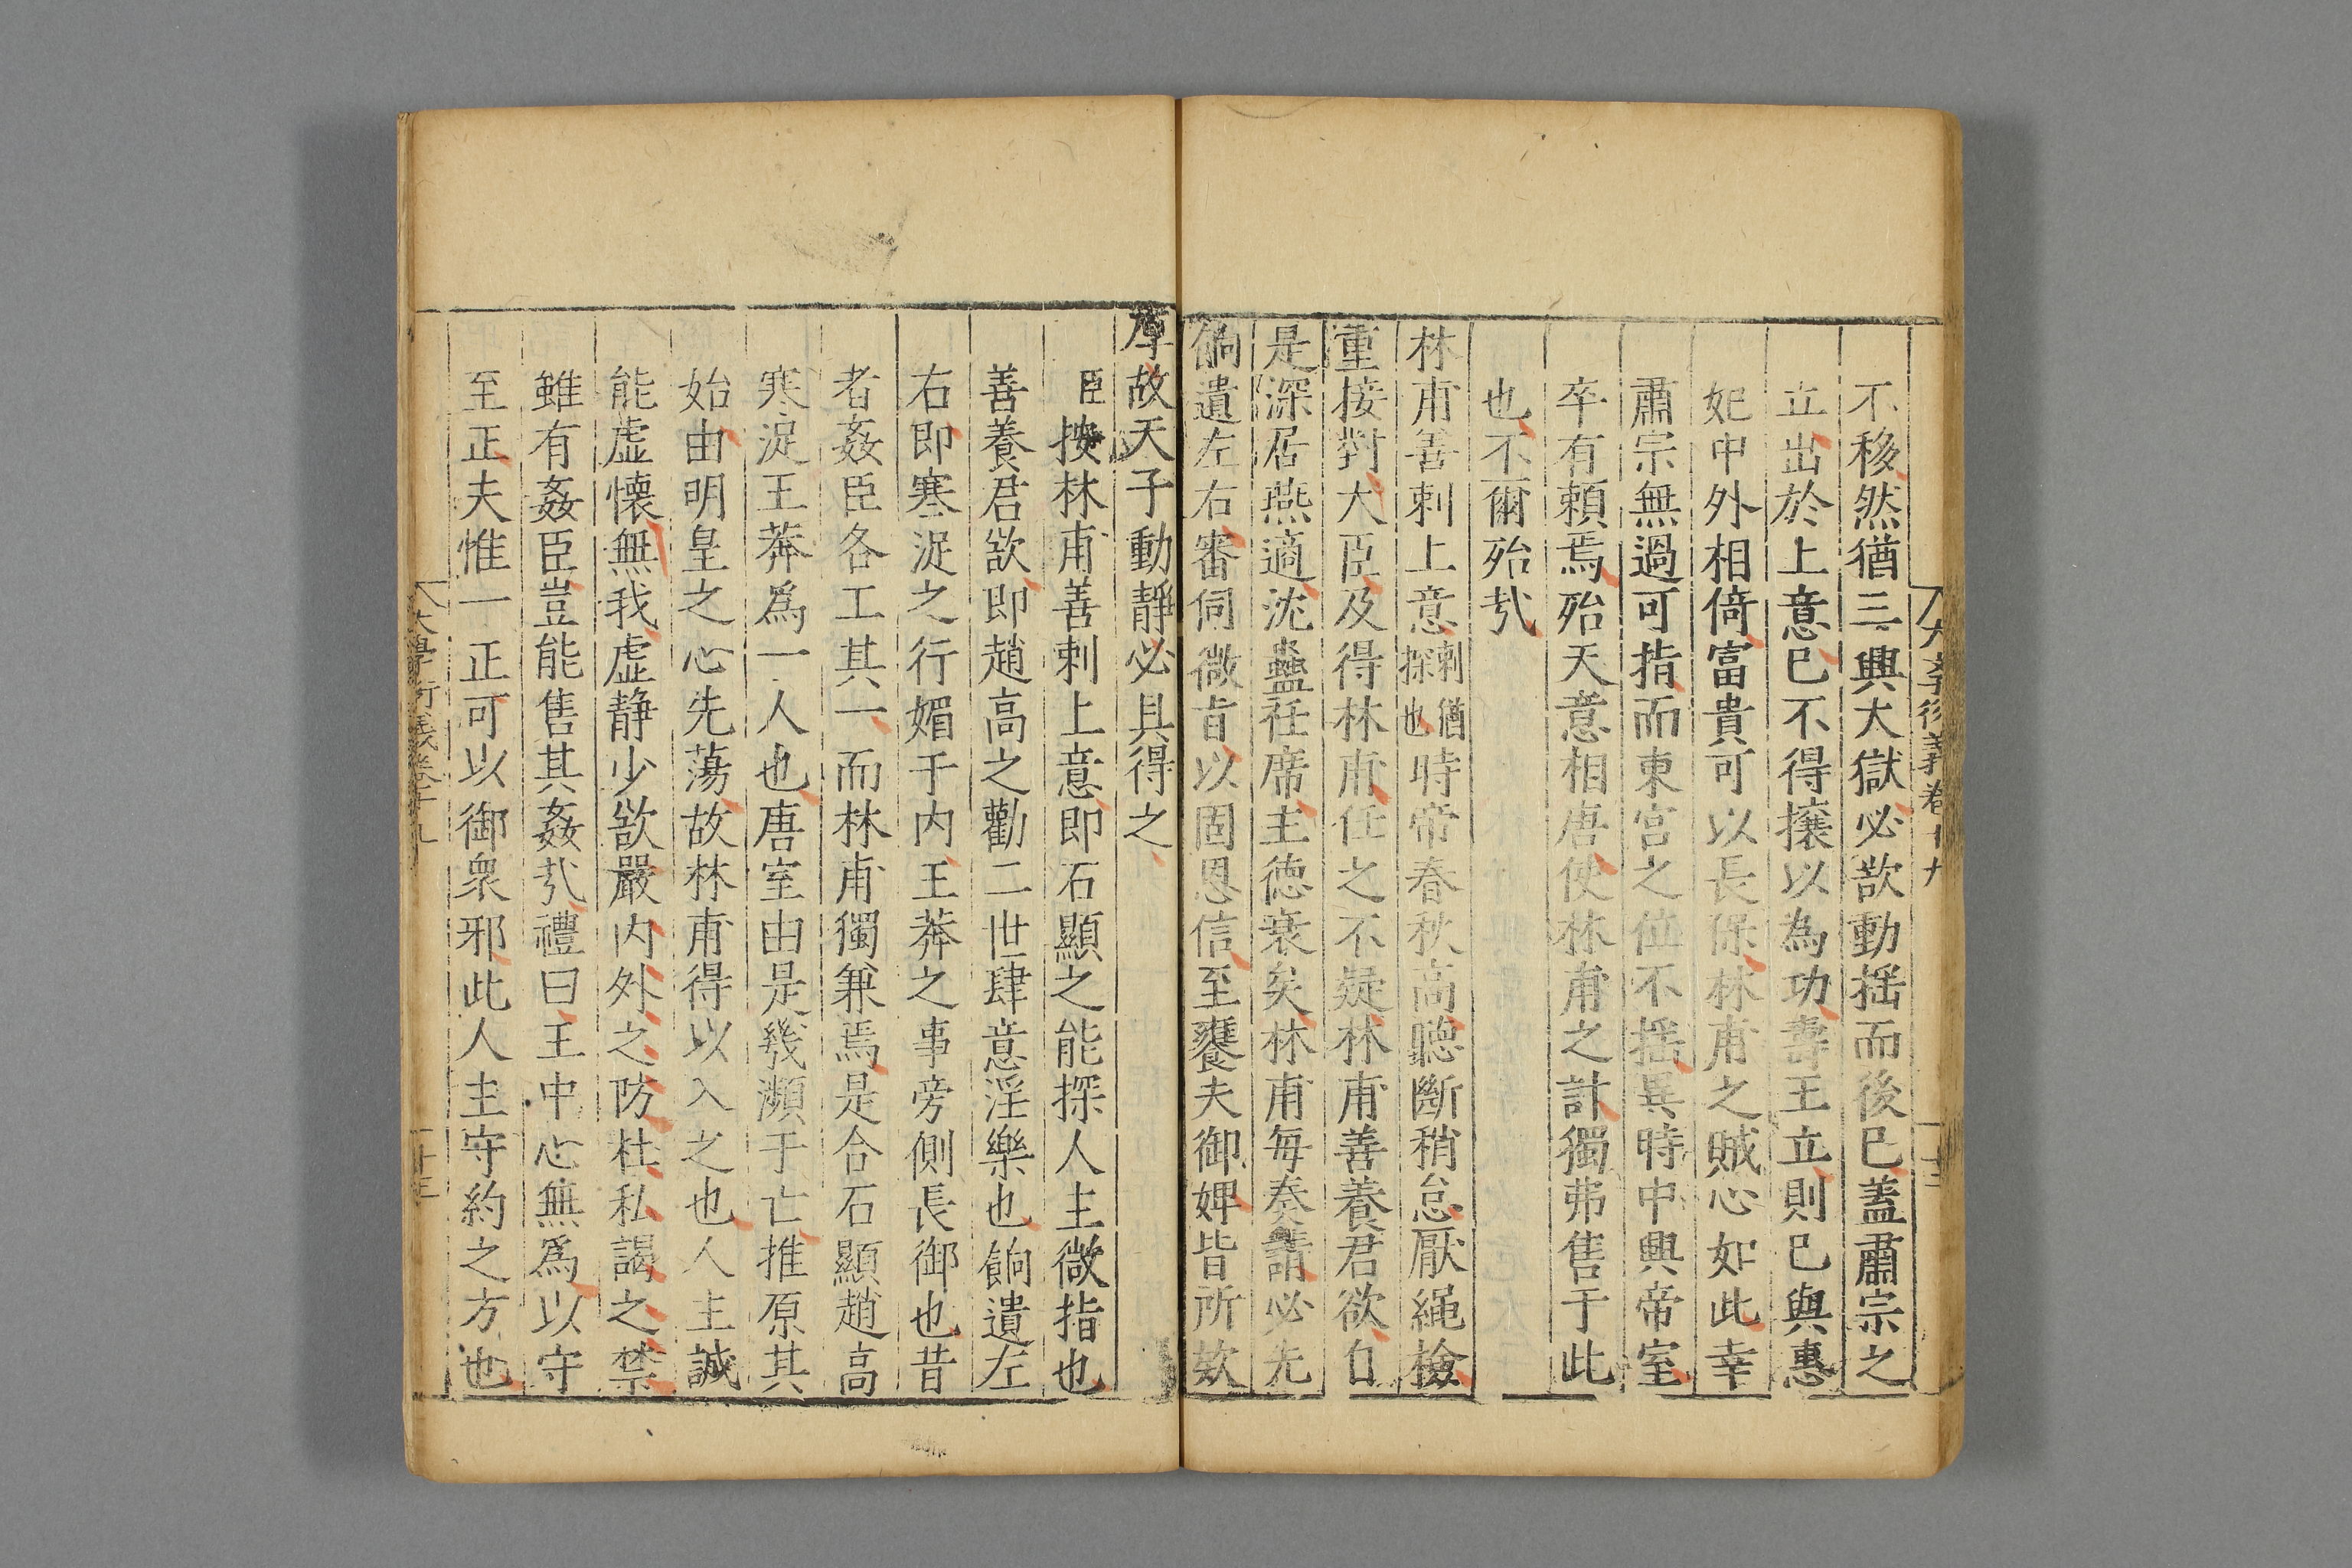 大學衍義卷十九
不移然猶三興大獄必欲動揺而後已蓋肅宗之
立出於上意已不得攘以為功壽王立則已與惠
妃中外相倚富貴可以長保林甫之賊心如此幸
肅宗無過可指而東宮之位不揺異時中興帝室
卒有賴焉殆天意相唐使林甫之計獨弗售于此
也不爾殆㢤
林甫善刺上意刺猶探也時帝春秋高聽斷稍怠厭繩檢
重接對大臣及得林甫任之不疑林甫善養君欲自
是深居燕適沈蠱衽席主徳衰矣林甫每奏請必先
餉遺左右審伺微旨以固恩信至饔夫御婢皆所欵
厚故天子動靜必具得之
臣按林甫善刺上意即石顯之能探人主微指也
善養君欲即趙高之勸二世肆意淫樂也餉遺左
右即寒浞之行媚于内王莽之事旁側長御也昔
者姦臣各工其一而林甫獨兼焉是合石顯趙高
寒浞王莽爲一人也唐室由是幾瀕于亡推原其
始由明皇之心先蕩故林甫得以入之也人主誠
能虚懷無我虚静少欲嚴内外之防杜私謁之禁
雖有姦臣豈能售其姦㢤禮曰王中心無爲以守
至正夫惟一正可以御衆邪此人主守約之方也
大學衍義卷十九